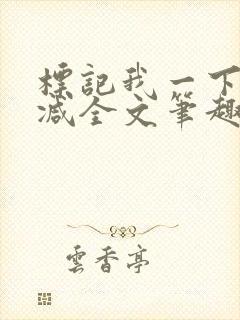 標記我一下
減全文筆趣
雲香亭